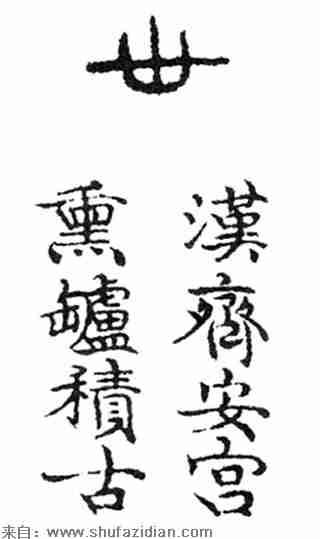 漢齊安宫
熏罏積古
来自：www.shufazidian.com